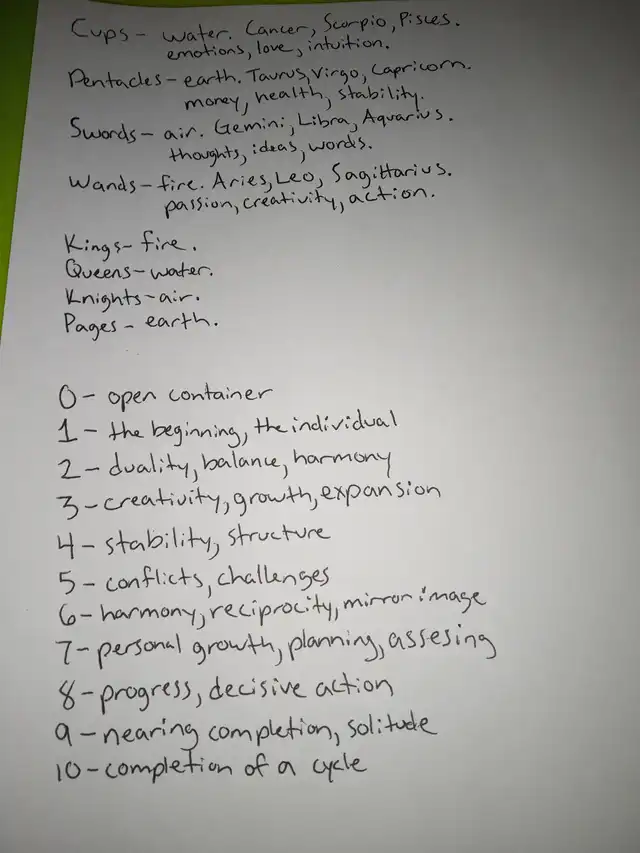 Cups - water. Cancer, Scorpio, Pisces.
emotions, love, intuition.
Pentacles - earth. Taurus, Virgo, Capricorn.
money, health, stability.
Swords - air. Gemini, Libra, Aquarius.
thoughts, ideas, words.
Wands - fire. Aries, Leo, Sagittarius.
passion, creativity, action.
Kings - fire.
Queens - water.
Knights - air.
Pages - earth.
0 - open container
1 - the beginning, the individual
2 - duality, balance, harmony
3 - creativity, growth, expansion
4 - stability, structure
5 - conflicts, challenges
6 - harmony, reciprocity, mirror image
7 - personal growth, planning, assesing
8 - progress, decisive action
9 - nearing completion, solitude
10 - completion of a cycle